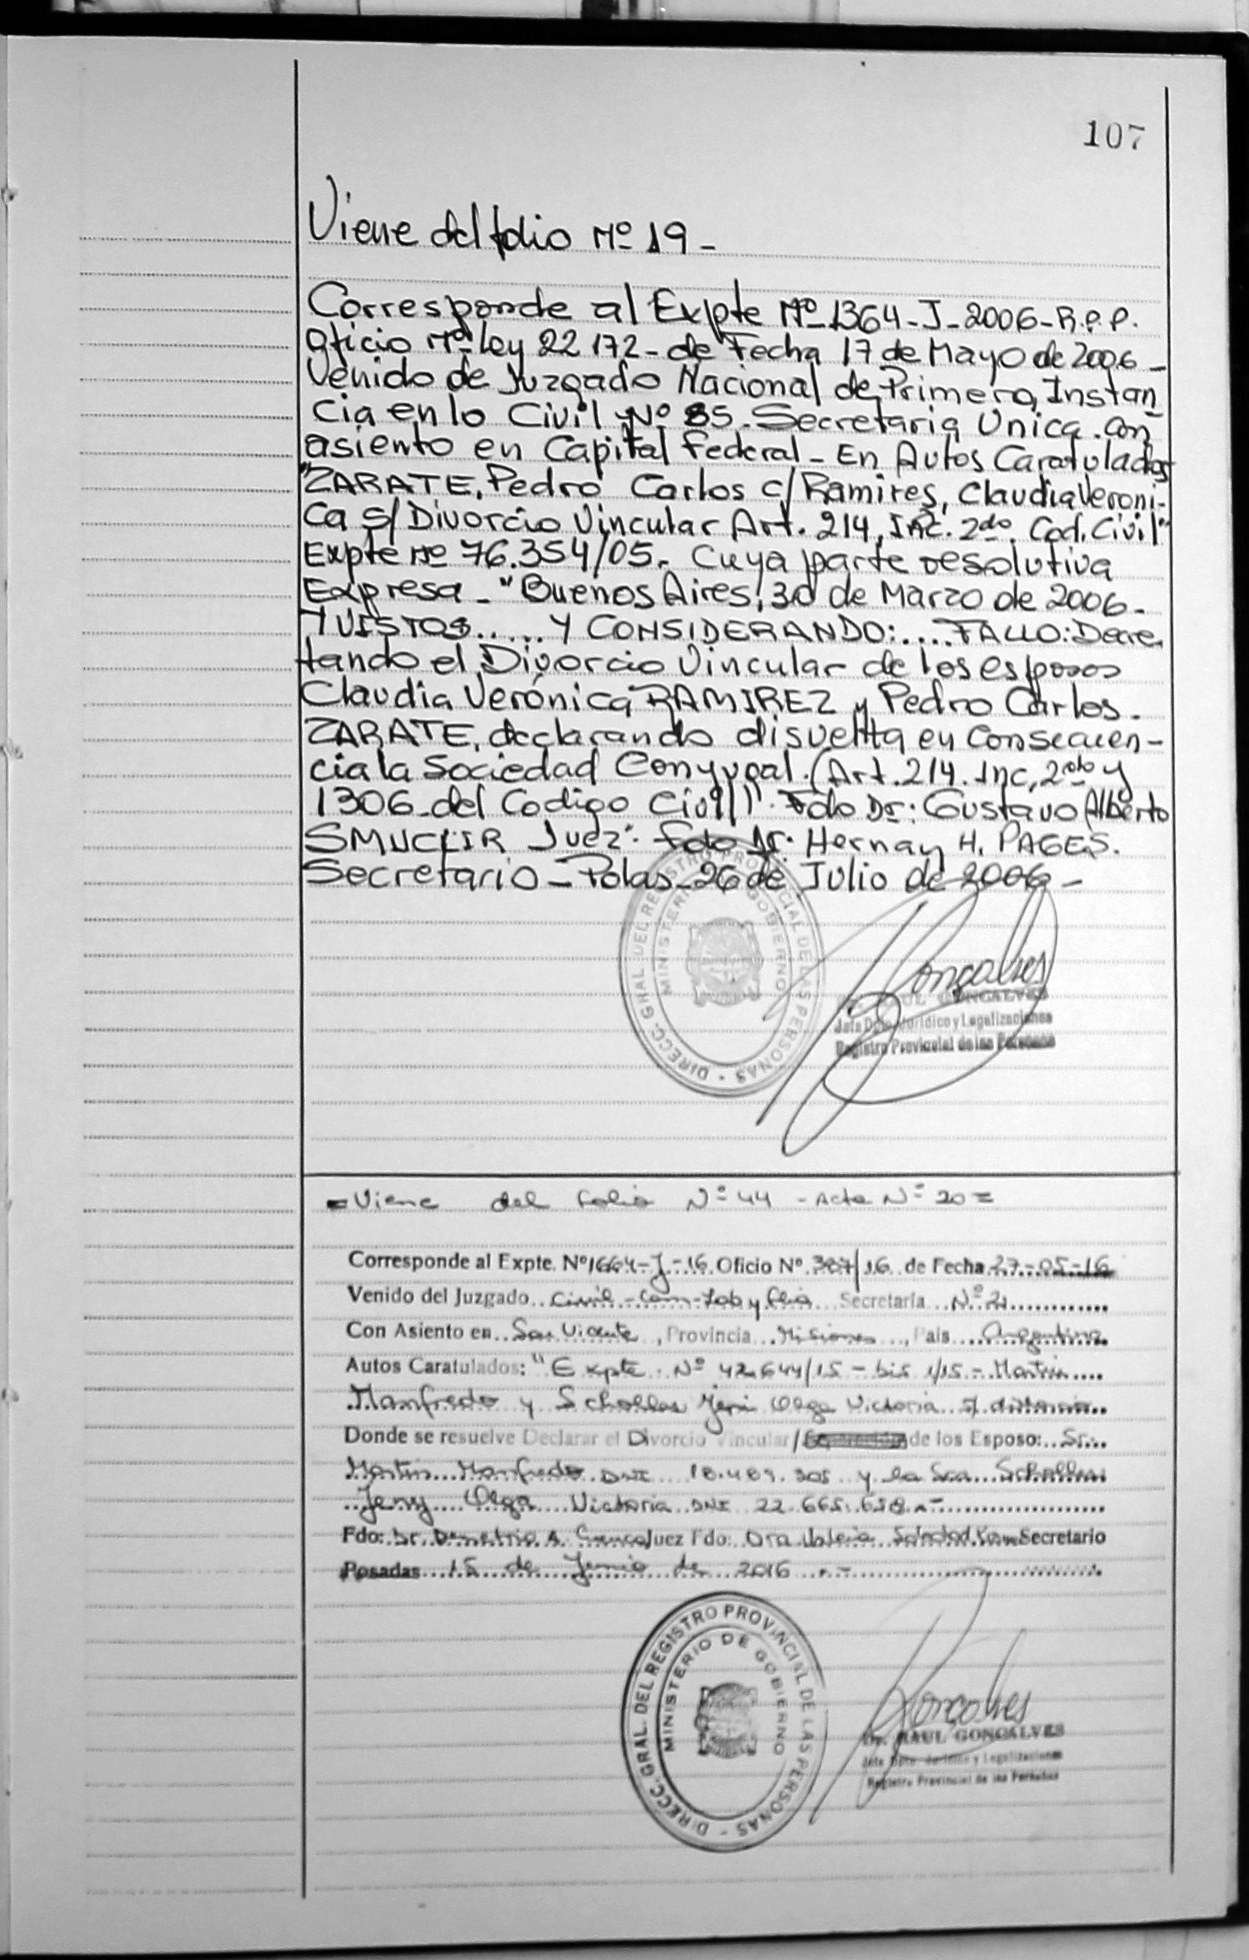 107
Viene del folio Nº 19-
Corresponde al Expte Nº 1364-J-2006-R.P.P.
Oficio Nº ley 22172- de Fecha 17 de Mayo de 2006-
Venido de Juzgado Nacional de Primera Instan
cia en lo Civil Nº 85. Secretaria Unica. con
asiento en Capital Federal- En Autos Caratulados
"ZARATE, Pedro Carlos c/ Ramires, Claudia Veroni-
ca s/ Divorcio Vincular Art. 214, INC. 2do. Cod. Civil"
Expte Nº 76.354/05. Cuya parte resolutiva
Expresa- "Buenos Aires, 30 de Marzo de 2006-
Y VISTOS..... Y CONSIDERANDO:.... FALLO: Decre
tando el Divorcio Vincular de los esposos
Claudia Verónica RAMIREZ y Pedro Carlos.
ZARATE, declarando disuelta en Consecuen-
cia la Sociedad Conyugal. (Art. 214. Inc, 2do y
1306 del Codigo Civil)". Fdo Dr: Gustavo Alberto
Juez". Fdo Dr. Hernan H. PAGES.
Secretario- 26 de Julio de 2006-
DIRECC. GRAL. DEL REGISTRO PROVINCIAL DE LAS PERSONAS
MINISTERIO DE GOBIERNO
Goncalves
GONCALVES
Jefe Dpto. Jurídico y Legalizaciones
Registro Provincial de las Personas
=Viene del folio Nº 44 - Acta Nº 20=
Corresponde al Expte. Nº 1664-J-16 Oficio Nº /16 de Fecha 27-05-16
Venido del Juzgado Civil-Com-Lab y flia Secretaría Nº 2
Con Asiento en San Vicente, Provincia Misiones, País Argentina
Autos Caratulados: "Expte. Nº 42.644/15 - bis 1/15.- Martin
Manfredo y Olga Victoria s/
Donde se resuelve Declarar el Divorcio Vincular/ de los Esposo: Sr.
Martin Manfredo DNI 18.489.305 y la Sra
Jenny Olga Victoria DNI 22.665.638.-
Fdo: Dr. Demetrio A. Juez Fdo: Dra Valeria Soledad Secretario
Posadas 15 de Junio de 2016.-
DIRECC. GRAL. DEL REGISTRO PROVINCIAL DE LAS PERSONAS
MINISTERIO DE GOBIERNO
Goncalves
Dr. RAUL GONCALVES
Jefe Dpto. Jurídico y Legalizaciones
Registro Provincial de las Personas